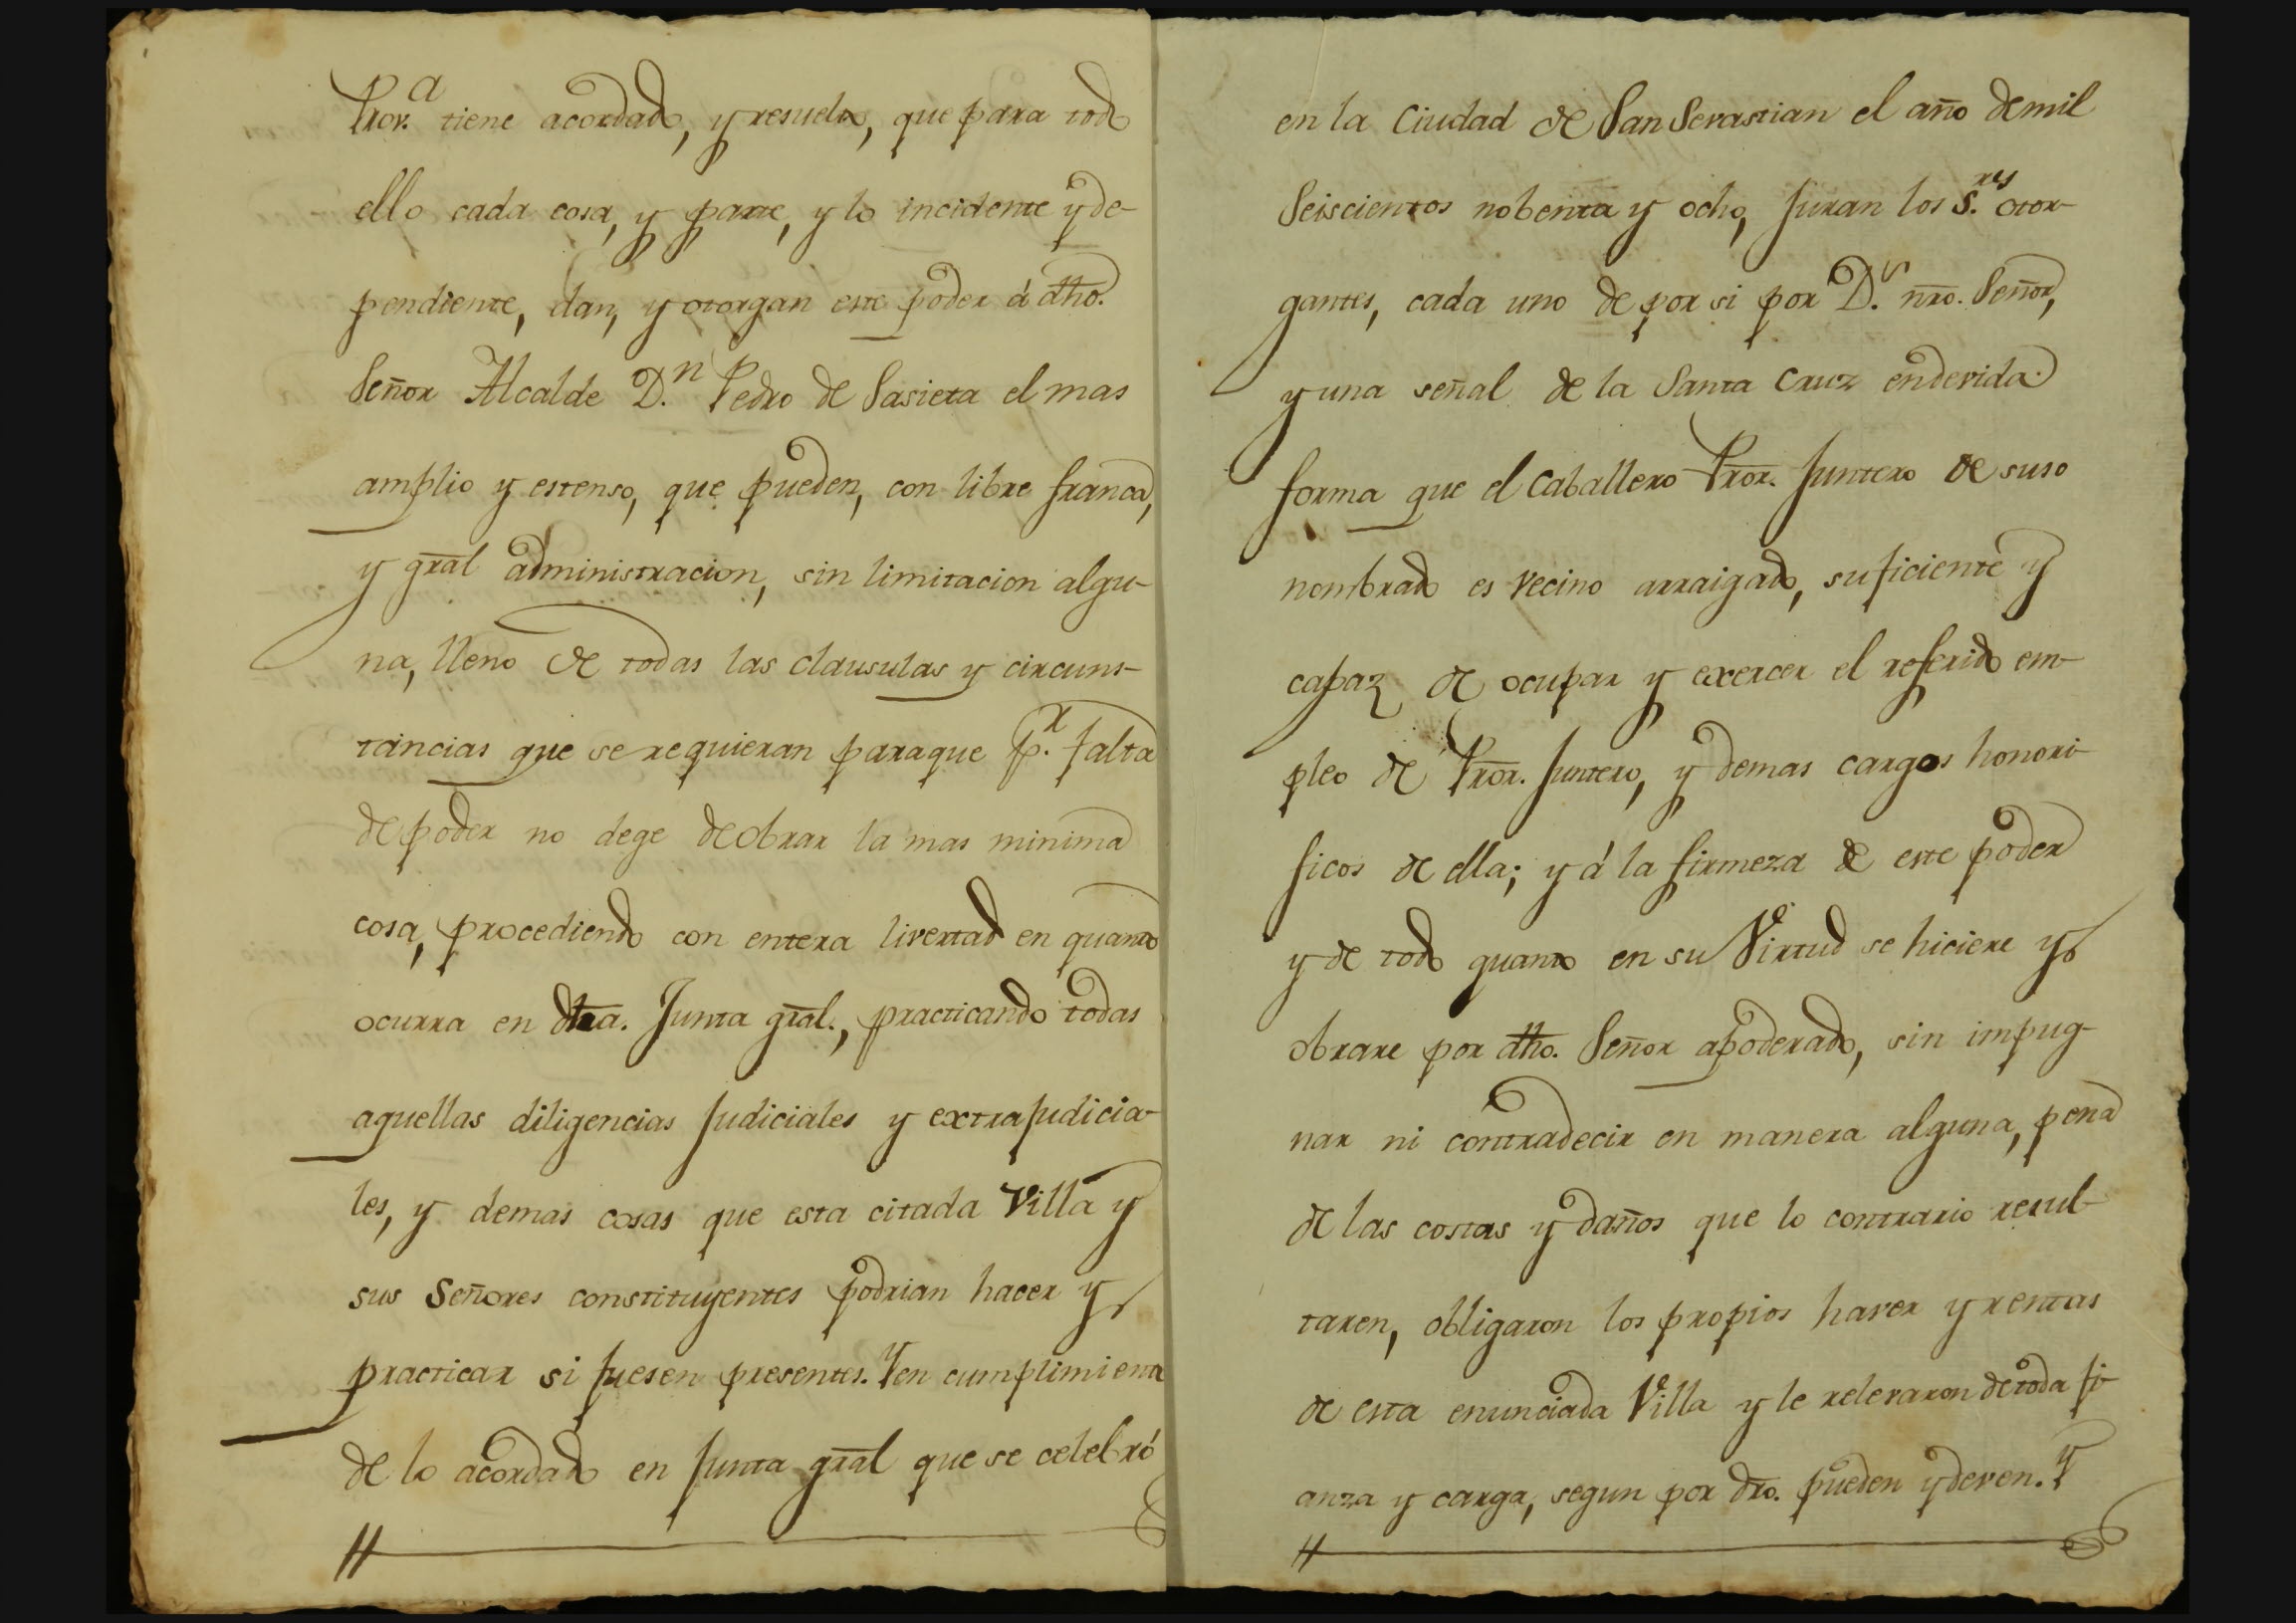 Prov.ª tiene acordado, y resuelto, que para todo
ello cada cosa, y parte, y lo incidente y de-
pendiente, dan, y otorgan este poder á dho.
Señor Alcalde D.n Pedro de Sasieta el mas
amplio y estenso, que pueden, con libre franca,
y gral administracion, sin limitacion algu-
na, lleno de todas las clausulas y circuns-
tancias que se requieran paraque p.r falta
de poder no dege de obrar la mas minima
cosa, procediendo con entera livertad en quanto
ocurra en dha. Junta gral., practicando todas
aquellas diligencias Judiciales y extraJudicia-
les, y demas cosas que esta citada Villa y
sus Señores constituyentes podrian hacer y
practicar si fuesen presentes. Y en cumplimiento
de lo acordado en Junta gral que se celebró
en la Ciudad de San Sevastian el año de mil
Seiscientos nobenta y ocho, Juran los S.res otor-
gantes, cada uno de por si por D.s nro. Señor,
y una señal de la Santa Cruz en devida
forma que el Caballero Pror. Juntero de suso
nombrado es vecino arraigado, suficiente y
capaz de ocupar y exercer el referido em-
pleo de Pror. Juntero, y demas cargos honori-
ficos de ella; y á la firmeza de este poder
y de todo quanto en su Virtud se hiciere y
obrare por dho. Señor apoderado, sin impug-
nar ni contradecir en manera alguna, pena
de las costas y daños que lo contrario resul-
taren, obligaron los propios haver y rentas
de esta enunciada Villa y le relevaron de toda fi-
anza y carga, segun por dro. pueden y deven. Y